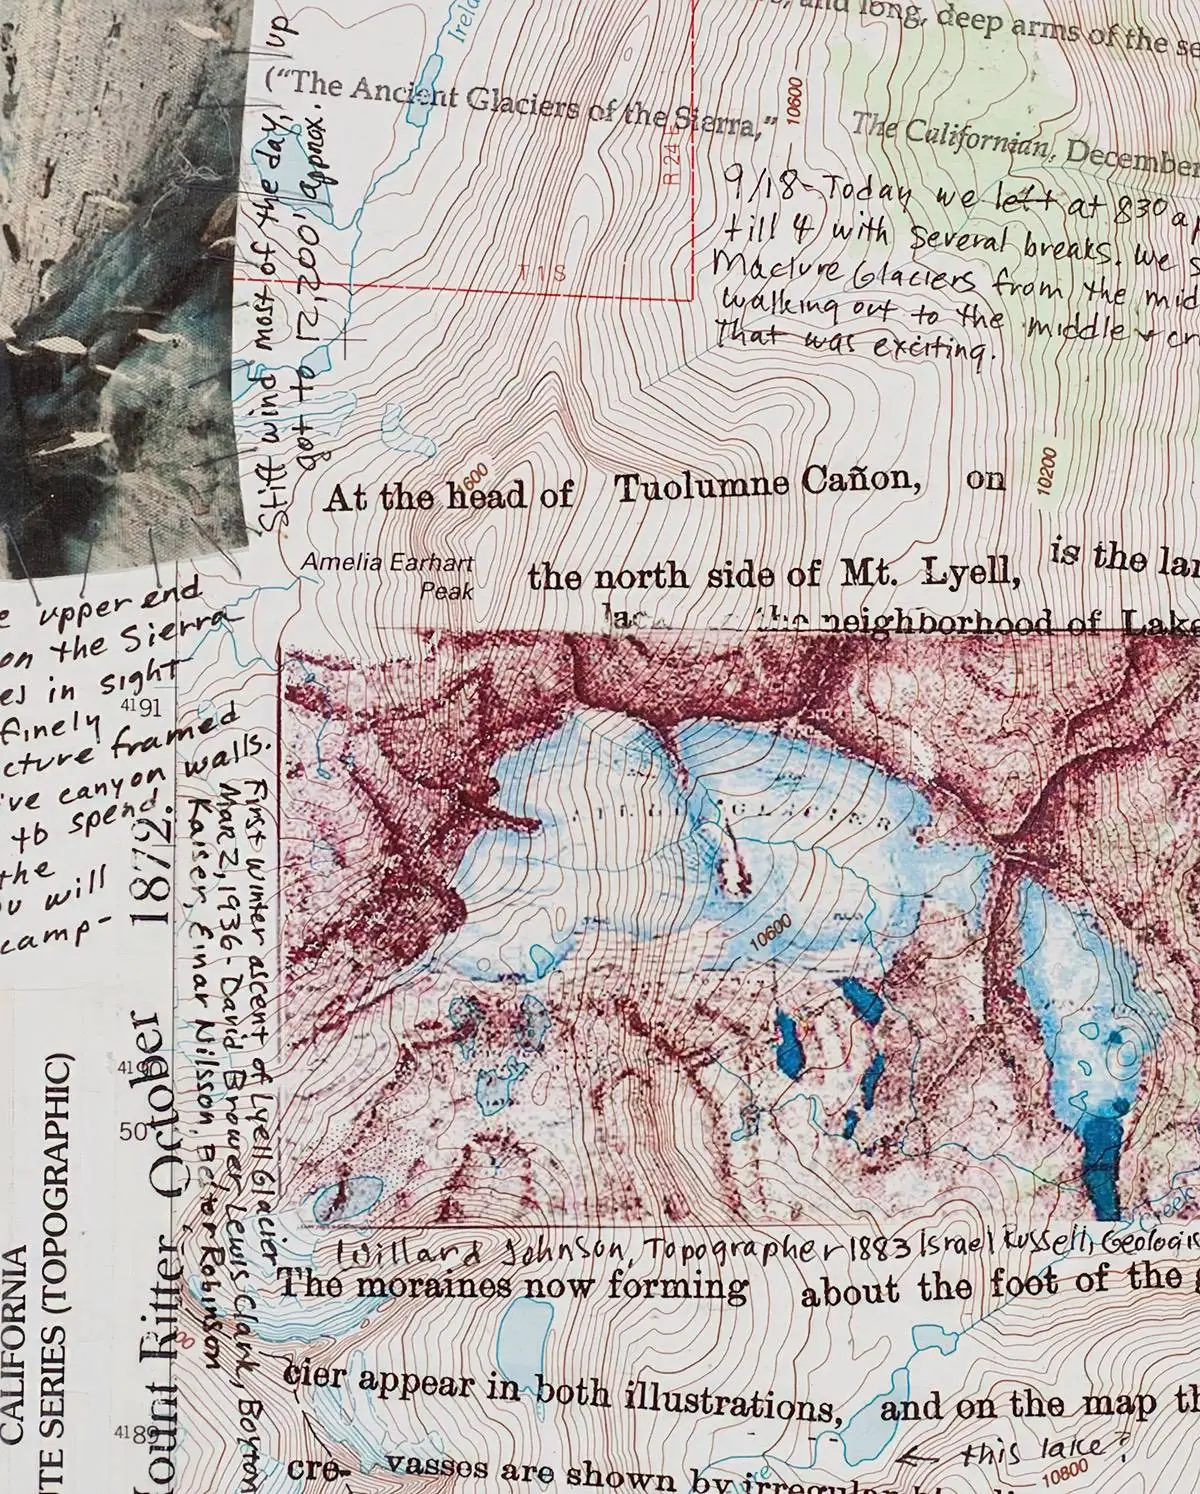 and long, deep arms of the se
("The Ancient Glaciers of the Sierra,"
The Californian, December
10600
R 24 E
T 1 S
9/18 - Today we left at 830 a
till 4 with several breaks. We s
Maclure Glaciers from the mid
walking out to the middle & cr
That was exciting.
up
Still wind most of the day,
got to 12,000', approx.
At the head of Tuolumne Cañon, on
10200
600
Amelia Earhart
Peak
the north side of Mt. Lyell, is the lar
the neighborhood of Lake
e upper end
on the Sierra
es in sight
finely
cture framed
ve canyon walls.
to spend
the
u will
camp-
4191
GLACIER
10600
First winter ascent of Lyell Glacier
Mar 2, 1936 - David Brower, Lewis Clark, Boynton
Kaiser, Einar Nilsson, Bestor Robinson
Mount Ritter, October 1872.
50
4189
CALIFORNIA
TE SERIES (TOPOGRAPHIC)
Creek
Willard Johnson, Topographer 1883 Israel Russell, Geologis
The moraines now forming about the foot of the
cier appear in both illustrations, and on the map th
← this lake?
10800
cre- vasses are shown by irregular